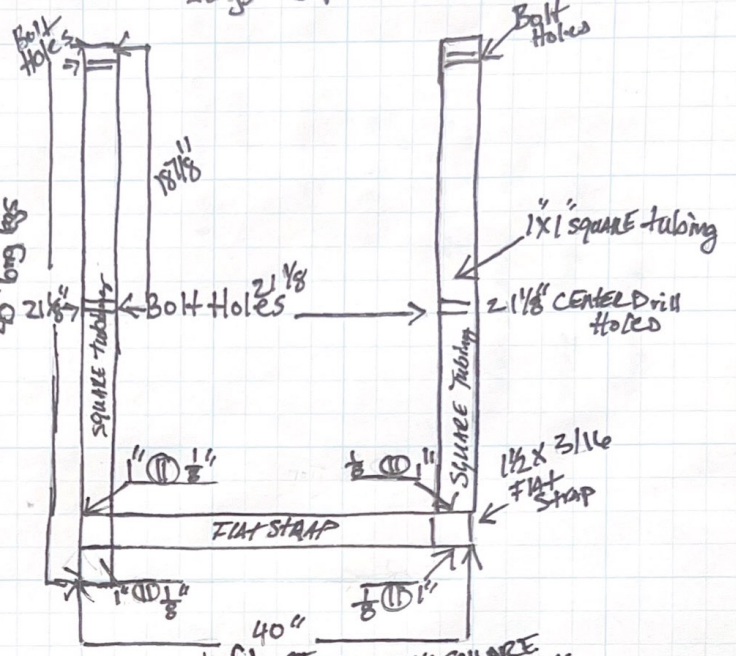 Bolt
Holes
Bolt
Holes
18 7/8"
1"x1" SQUARE tubing
21 1/8"
Bolt Holes
21 1/8
21 1/8" CENTER Drill
Holes
SQUARE tubing
SQUARE Tubing
1" 1/8"
1/8 1"
1 1/2 x 3/16
FlAt
StRAp
FlAt STRAP
1" 1/8"
1/8 1"
40"
SQUARE